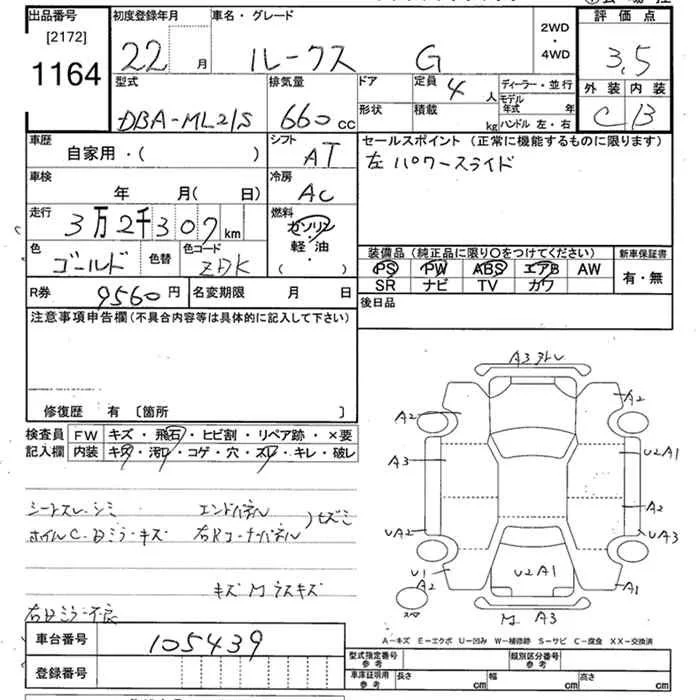 出品番号 初度登録年月 車名・グレード 2WD・4WD 評価点
[2172]
1164
22 月 ルークス G 3.5
型式 排気量 ドア 定員 4 人 ディーラー・並行 外装 内装
DBA-ML21S 660 cc 形状 積載 kg モデル年式 年 C B
ハンドル 左・右
車歴 シフト セールスポイント (正常に機能するものに限ります)
自家用・( ) AT 左パワースライド
車検 冷房
年 月( 日) AC
走行 燃料
3万2千307km ガソリン
軽・油
( )
色 色替 色コード 装備品 (純正品に限り○をつけてください) 新車保証書
ゴールド ZDK PS PW ABS エアB AW 有・無
SR ナビ TV カワ
R券 9560円 名変期限 月 日 後日品
注意事項申告欄(不具合内容等は具体的に記入して下さい)
修復歴 有 〔箇所 〕
検査員 FW キズ・飛石・ヒビ割・リペア跡・×要
記入欄 内装 キズ・汚レ・コゲ・穴・スレ・キレ・破レ
シートスレ・シミ エンドパネル
ホイルC・日ミラーキズ 右Rコーナーパネル
キズ M ラスキズ
車台番号 105439
登録番号
A3
A2 A2
A3 U2A1
A2
UA2 UA3
U1
A2 U2A1 A1
スペア
M A3
A-キズ E-エクボ U-凹み W-補修跡 S-サビ C-腐食 XX-交換済
型式指定番号 参考 類別区分番号 参考
車庫証明用 参考 長さ cm 幅 cm 高さ cm